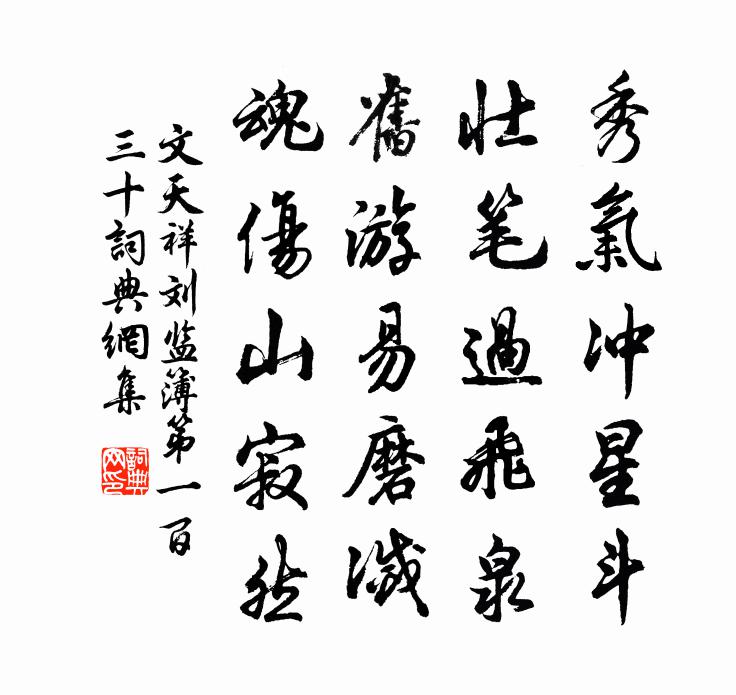 秀氣冲星斗
壮笔過飛泉
舊游易磨滅
魂傷山寂然
文天祥刘监簿第一百
三十詞典網集
詞典
网印